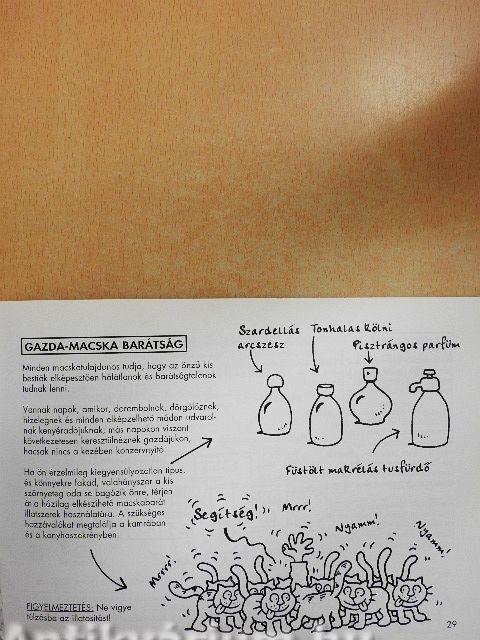 GAZDA-MACSKA BARÁTSÁG
Minden macskatulajdonos tudja, hogy az önző kis
bestiák elképesztően hálátlanok és barátságtalanok
tudnak lenni.
Vannak napok, amikor, dorombolnak, dörgölőznek,
hízelegnek és minden elképzelhető módon udvarol-
nak kenyéradójuknak, más napokon viszont
következetesen keresztülnéznek gazdájukon,
hacsak nincs a kezében konzervnyitó.
Ha ön érzelmileg kiegyensúlyozatlan típus,
és könnyekre fakad, valahányszor a kis
szörnyeteg oda se bagózik önre, térjen
át a házilag elkészíthető macskabarát
illatszerek használatára. A szükséges
hozzávalókat megtalálja a kamrában
és a konyhaszekrényben.
FIGYELMEZTETÉS: Ne vigye
túlzásba az illatosítást!
Szardellás
arcszesz
Tonhalas kölni
Pisztrángos parfüm
Füstölt makrélás tusfürdő
Segítség!
Mrrr!
Nyamm!
Nyamm!
Mrrrr!
29